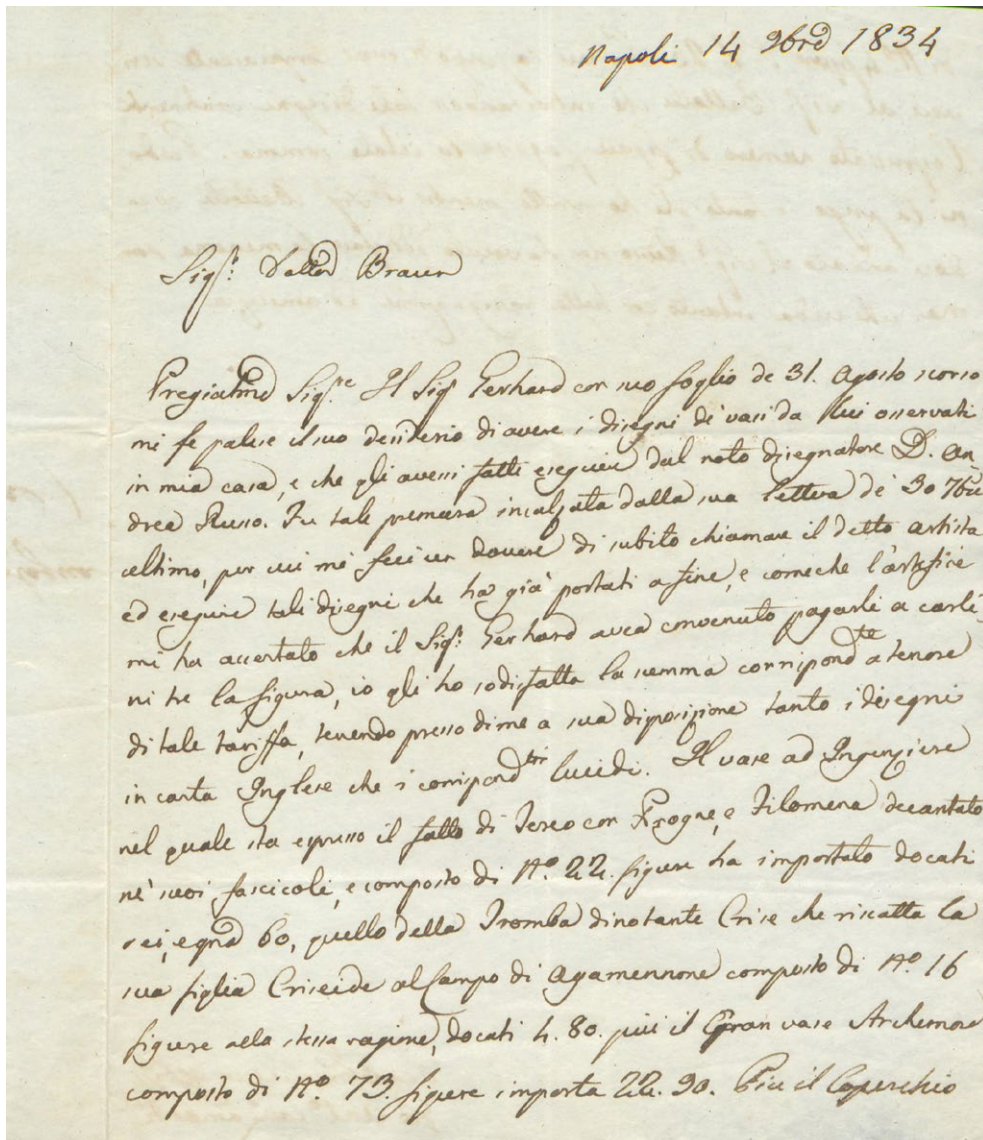 Napoli 14 9bre 1834
Sigr. Dottor Braun
Pregiatmo Sigre. Il Sigr Gerhard con suo foglio de 31. Agosto scorso
mi fe palese il suo desiderio di avere i disegni de' vasi da Lui osservati
in mia casa, e che gli avessi fatti eseguire dal noto disegnatore D. An=
drea Russo. Fu tale premura incalzata dalla sua lettera de' 30 7bre
ultimo, per cui mi feci un dovere di subito chiamare il detto artista
ed eseguire tali disegni che ha già portati a fine, e comeche l'artefice
mi ha accertato che il Sigr. Gerhard avea convenuto pagarli a carli=
ni tre la figura, io gli ho sodisfatta la summa corrispondte a tenore
di tale tariffa, tenendo presso di me a sua disposizione tanto i disegni
in carta Inglese che i corrispondti lucidi. Il vase ad Incenziere
nel quale sta espresso il fatto di Tereo con Progne, e Filomena decantato
ne' suoi fascicoli, e composto di No. 22. figure ha importato docati
sei, e gna 60, quello della Tromba dinotante Crise che riscatta la
sua figlia Criseide al Campo di Agamennone composto di No 16
figure alla stessa ragione, docati 4. 80. più il Gran vase Archemoro
composto di No. 73. figure importa 22. 90. Più il Coperchio